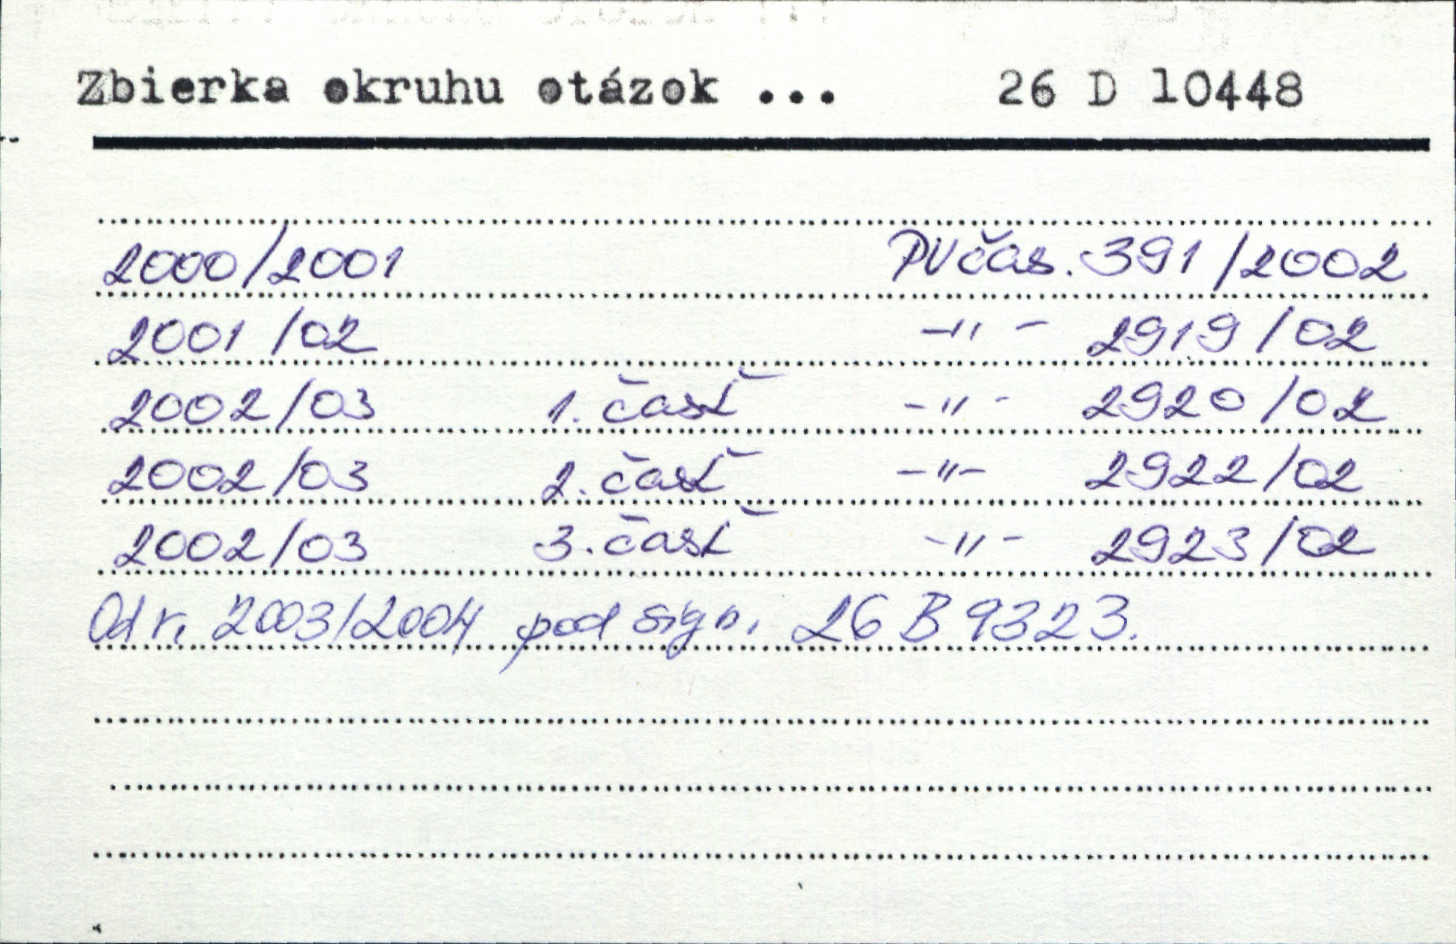 Zbierka okruhu otázok ... 26 D 10448
2000/2001 PV čas. 391/2002
2001/02 -"- 2919/02
2002/03 1. časť -"- 2920/02
2002/03 2. časť -"- 2922/02
2002/03 3. časť -"- 2923/02
Od r. 2003/2004 pod sign. 26 B 9323.